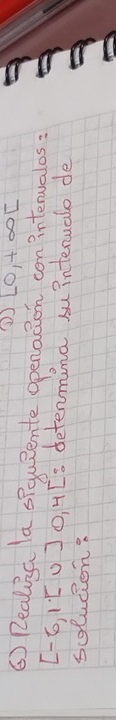 D) [0,+∞[
6) Realiza la siguiente operación con intervalos:
[-6,1[ U ]0,4[: determina su intervalo de
solución: